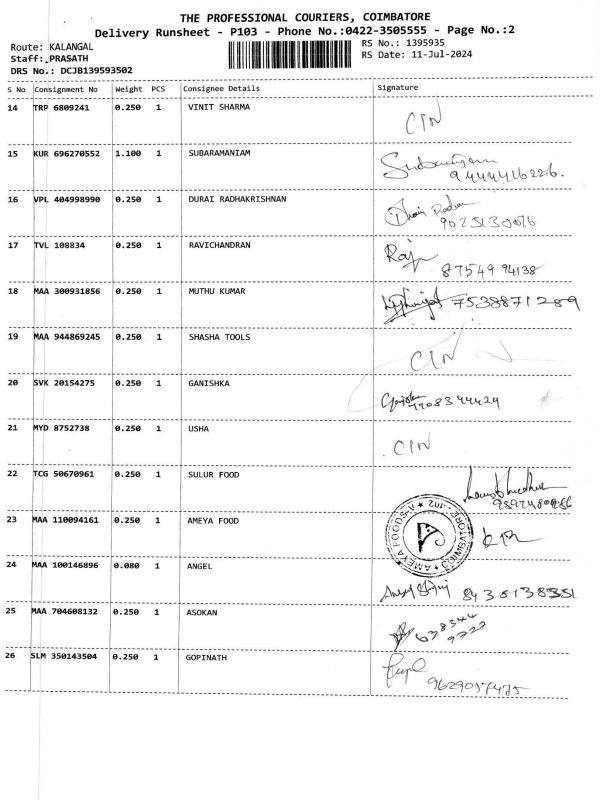 THE PROFESSIONAL COURIERS, COIMBATORE
Delivery Runsheet - P103 - Phone No.:0422-3505555 - Page No.:2
Route: KALANGAL
RS No.: 1395935
Staff: PRASATH
RS Date: 11-Jul-2024
DRS No.: DCJB139593502
S No Consignment No Weight PCS Consignee Details Signature
14 TRP 6809241 0.250 1 VINIT SHARMA
CIN
15 KUR 696270552 1.100 1 SUBARAMANIAM
9444416226.
16 VPL 404998990 0.250 1 DURAI RADHAKRISHNAN
17 TVL 108834 0.250 1 RAVICHANDRAN
Raj
87549 94138
18 MAA 300931856 0.250 1 MUTHU KUMAR
7538871289
19 MAA 944869245 0.250 1 SHASHA TOOLS
CIN
20 SVK 20154275 0.250 1 GANISHKA
21 MYD 8752738 0.250 1 USHA
CIN
22 TCG 50670961 0.250 1 SULUR FOOD
23 MAA 110094161 0.250 1 AMEYA FOOD
AMEYA FOODS
24 MAA 100146896 0.080 1 ANGEL
8435138351
25 MAA 704608132 0.250 1 ASOKAN
26 SLM 350143504 0.250 1 GOPINATH
9629017475